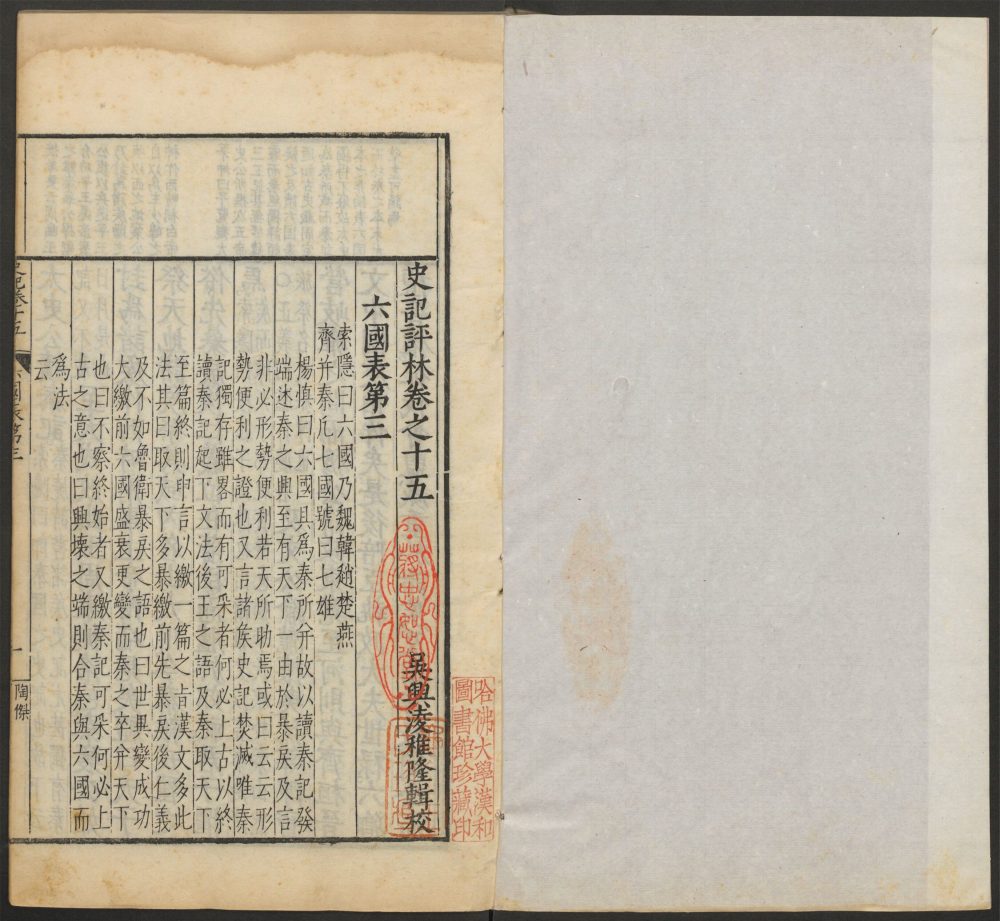 史記評林卷之十五
吳興凌稚隆輯校
六國表第三
索隱曰六國乃魏韓趙楚燕
齊并秦凡七國號曰七雄
楊慎曰六國具爲秦所并故以讀秦記發
端迷秦之興至有天下一由於暴戾及言
非必形勢便利若天所助焉或曰云云形
勢便利之證也又言諸侯史記焚滅唯秦
記獨存雖畧而有可采者何必上古以終
讀秦記起下文法後王之語及秦取天下
至篇終則申言以繳一篇之旨漢文多此
法其曰取天下多暴繳前先暴戾後仁義
及不如魯衛暴戾之語也曰世異變成功
大繳前六國盛衰更變而秦之卒并天下
也曰不察終始者又繳秦記可采何必上
古之意也曰興壞之端則合秦與六國而
爲法
云
史記卷十五
六國表第三
一
陶傑
哈佛大學漢和
圖書館珍藏印